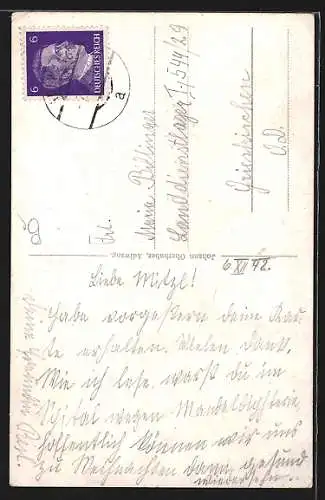 6
DEUTSCHES REICH
6
a
Frl.
Maria Billinger
Landdienstlager I/544/29
Grieskirchen
O.D.
Johann Oberhuber, Adlwang.
6 XII 42.
Liebe Mitzl!
Habe vorgestern deine Kar-
te erhalten. Vielen Dank.
Wie ich lese, warst du im
Spital wegen Mandeldiphterie,
hoffentlich können wir uns
zu Weihnachten dann gesund
wiedersehn.